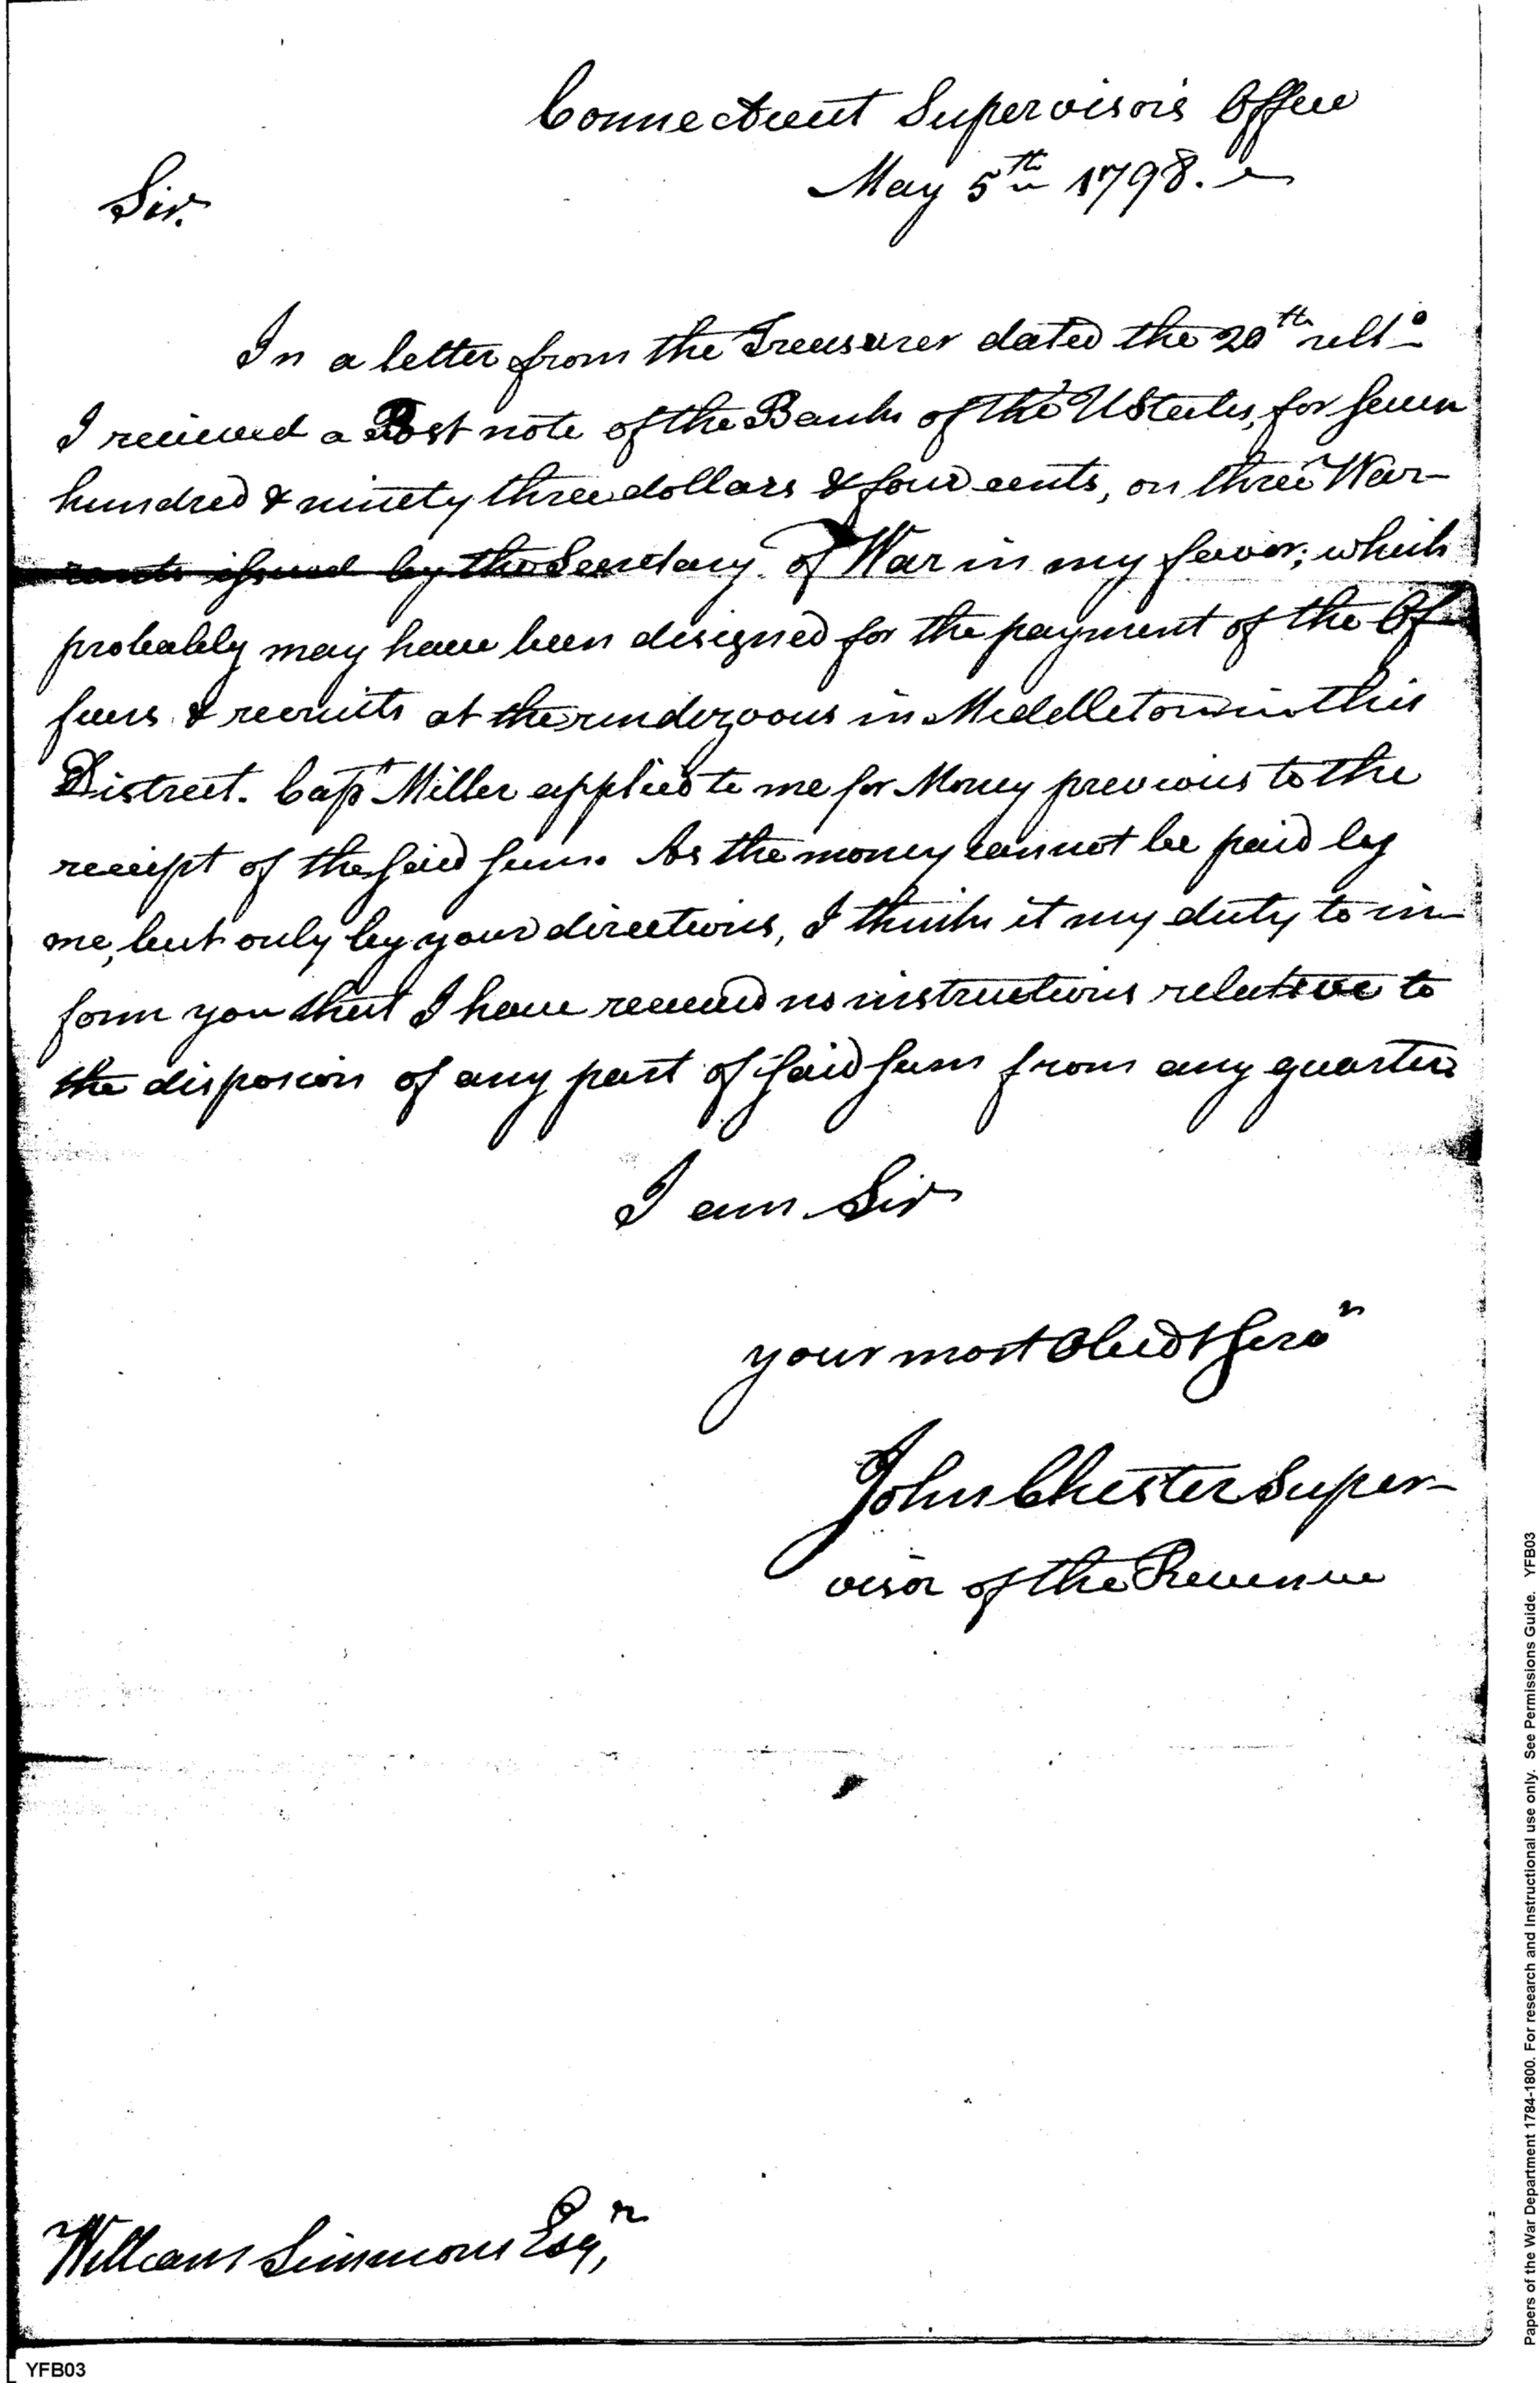 Connecticut Supervisor's Office
May 5th 1798.
Sir.
In a letter from the Treasurer dated the 20th ulto
I received a Post note of the Bank of the UStates, for seven
hundred & ninety three dollars & four cents, on three War-
rants issued by the Secretary of War in my favor; which
probably may have been designed for the payment of the Of-
ficers & recruits at the rendezvous in Middletown in this
District. Capt Miller applied to me for Money previous to the
receipt of the said sum. As the money cannot be paid by
me, but only by your directions, I think it my duty to in-
form you that I have received no instructions relative to
the disposion of any part of said sum from any quarter
I am Sir
your most Obedt Servn
John Chester Super-
visor of the Revenue
William Simmons Esqr,
YFB03
Papers of the War Department 1784-1800. For research and Instructional use only. See Permissions Guide. YFB03